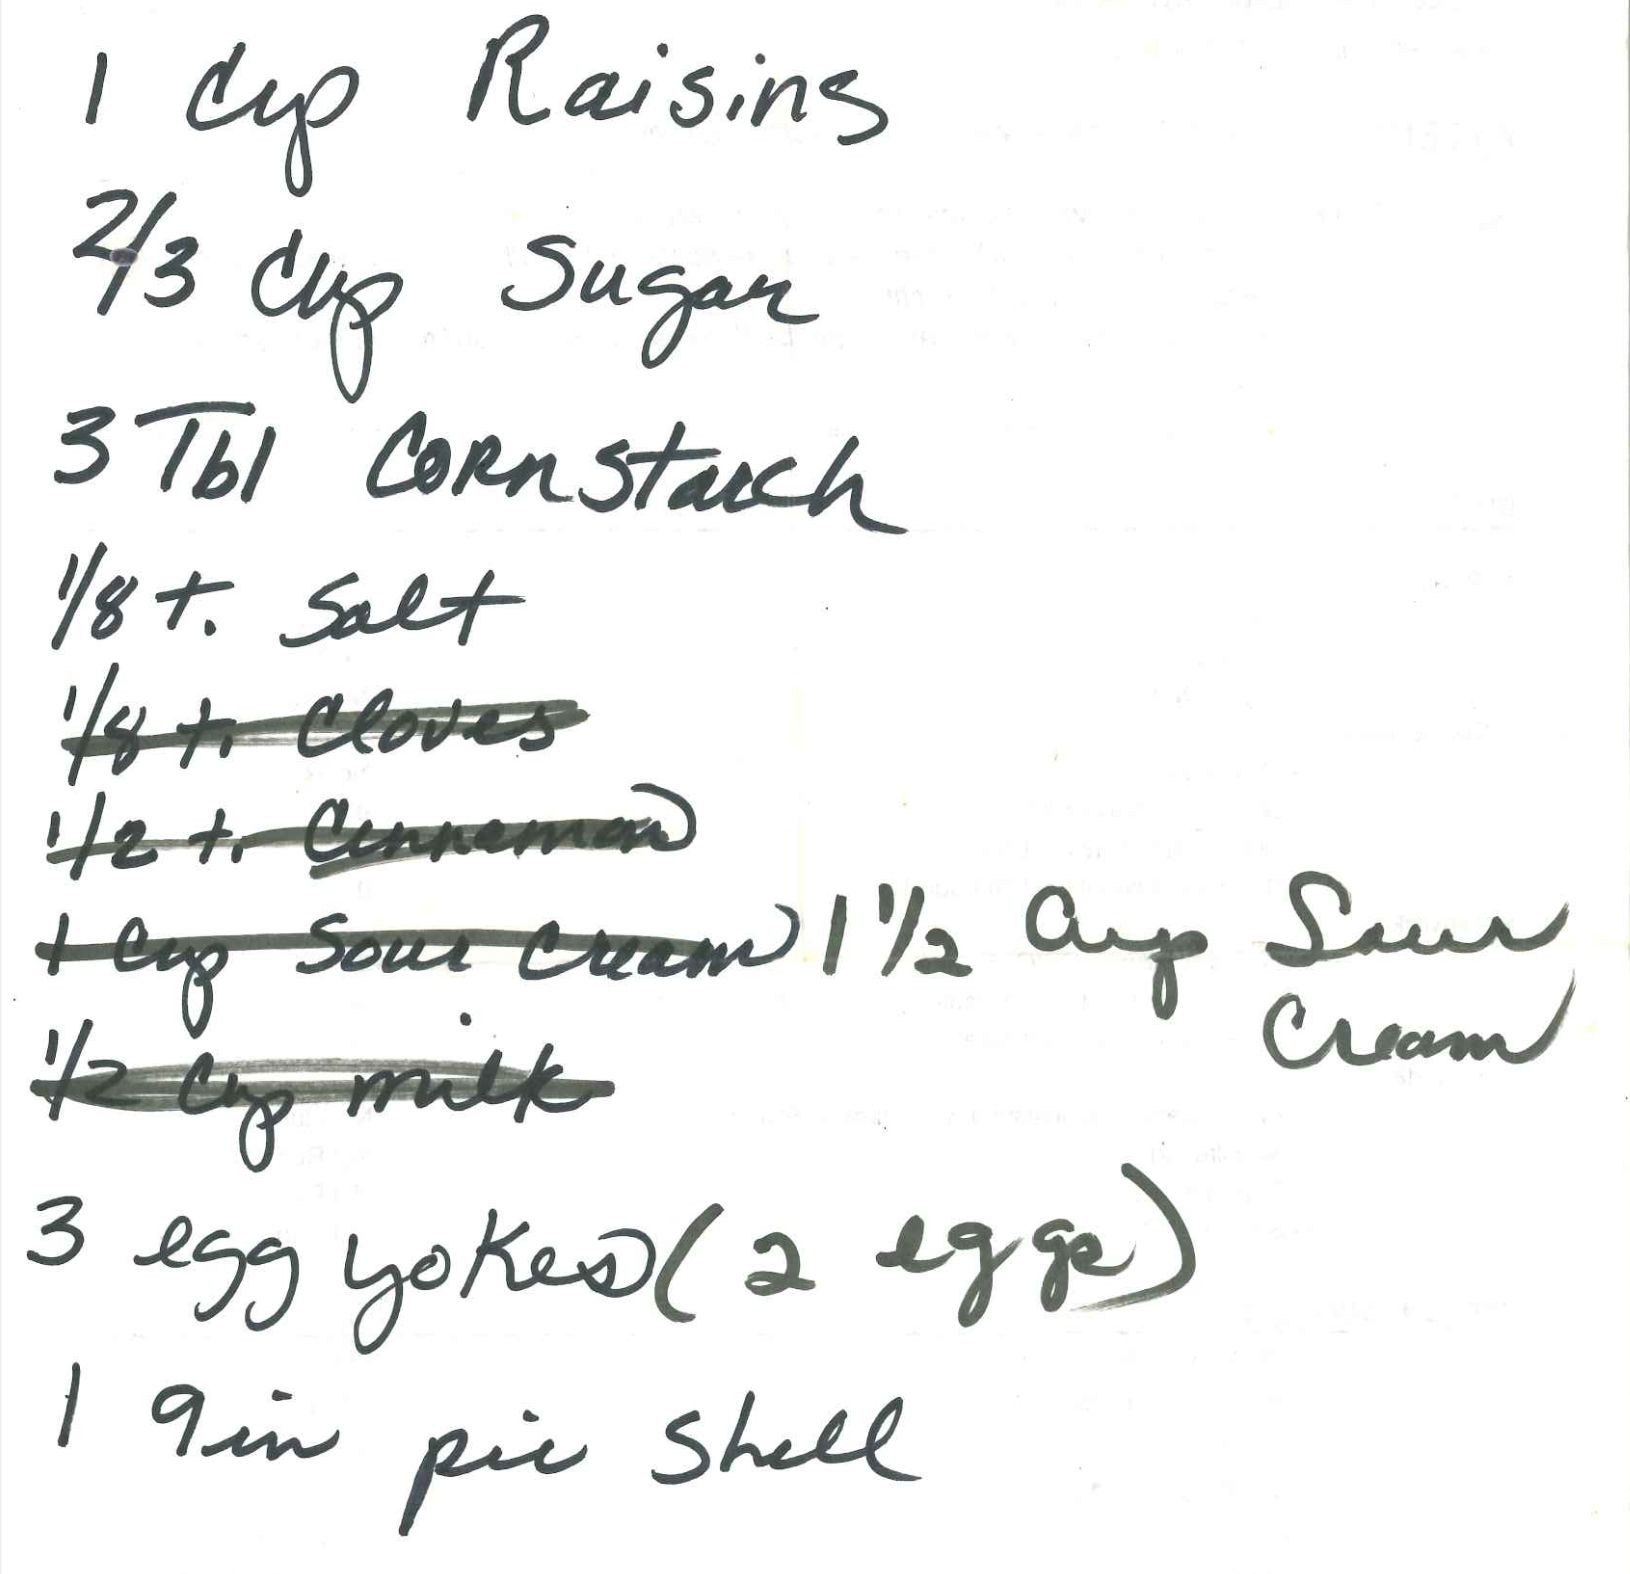 1 Cup Raisins
2/3 Cup Sugar
3 Tbl Cornstarch
1/8 t. Salt
1/8 t. Cloves
1/2 t. Cinnamon
1 Cup Sour Cream 1 1/2 Cup Sour
Cream
1/2 Cup milk
3 egg yokes (2 eggs)
1 9in pie shell